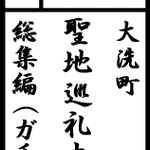 大洗町
聖地巡礼
総集編(ガ